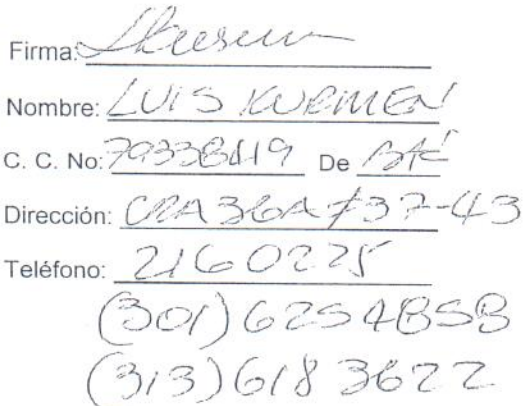 Firma:
Nombre: LUIS KURMEN
C. C. No: 79338419 De BTÉ
Dirección: CRA 36A #37-43
Teléfono: 2160225
(301) 6254858
(313) 618 3622